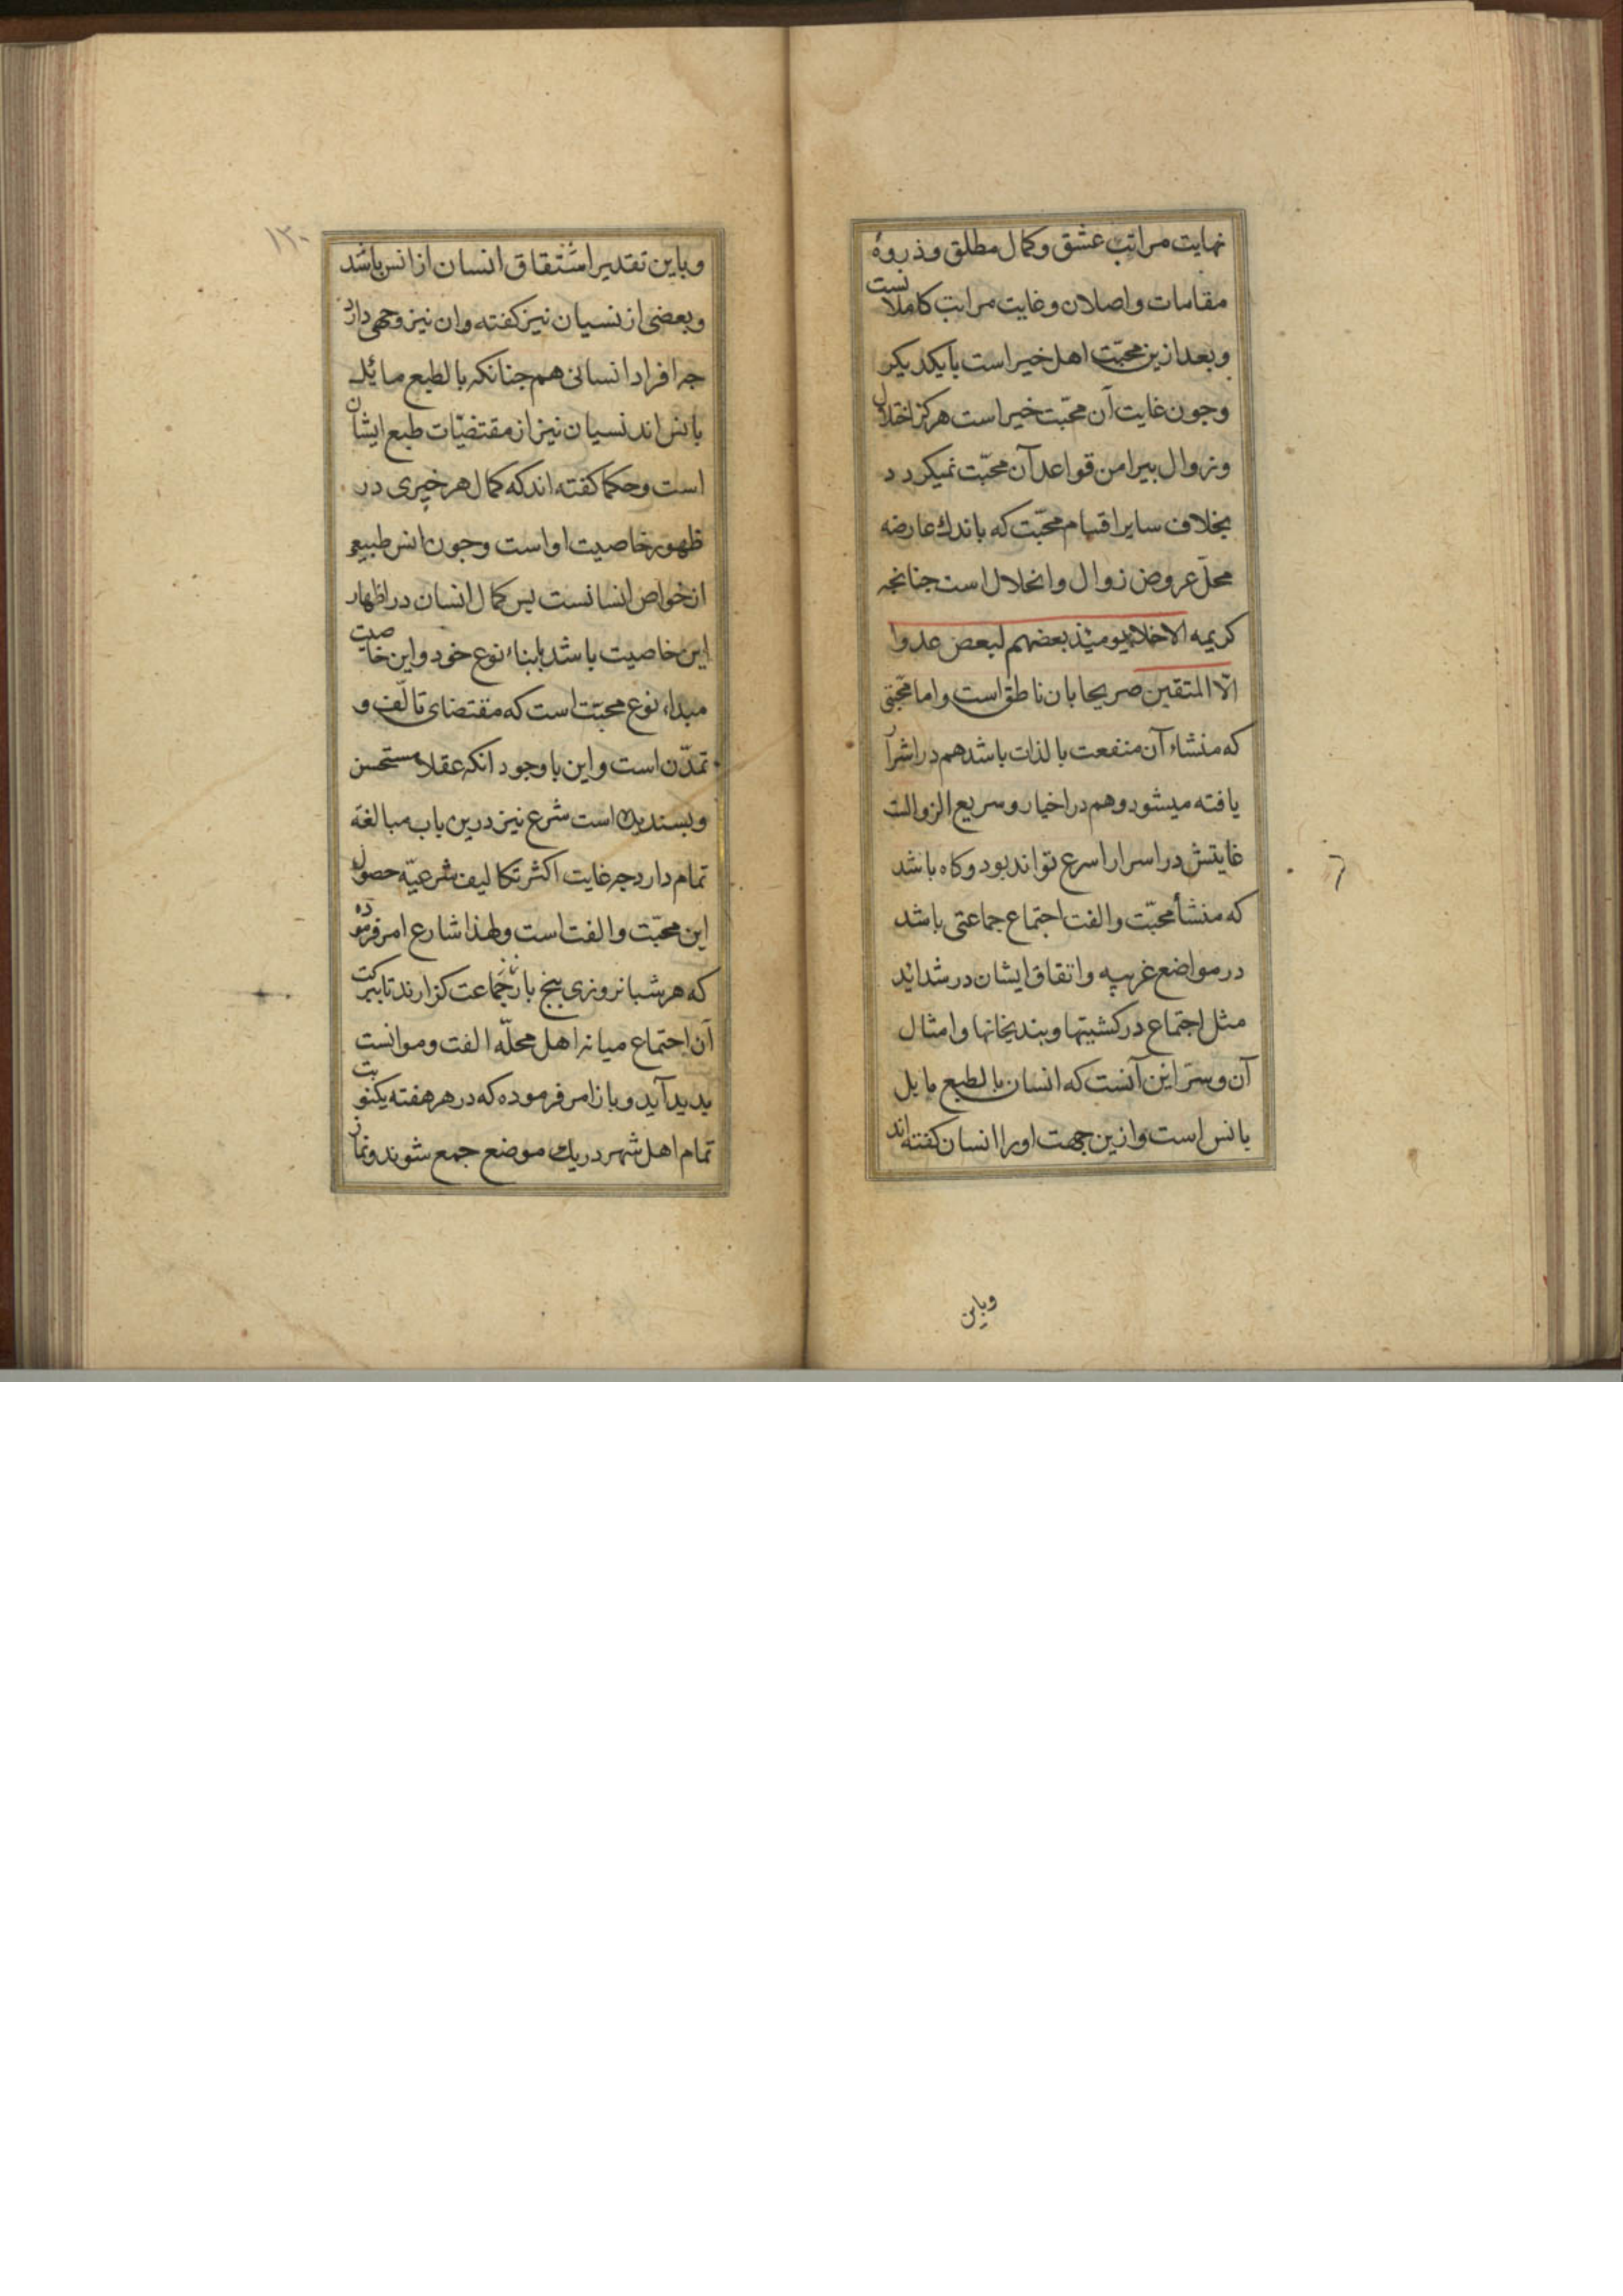 نهایت مراتب عشق و کمال مطلق و ذروهٔ
مقامات واصلان و غایت مراتب کاملانست
و بعد ازین محبّت اهل خیر است با یکدیکر
و جون غایت آن محبّت خیر است هرکز اختلال
و زوال بیرامن قواعد آن محبّت نمیکردد
بخلاف سایر اقسام محبّت که باندك عارضه
محلّ عروض زوال و انحلال است جنانجه
کریمه الاخلاء یومیٔذ بعضهم لبعض عدوا
الّا المتقین صریحا بان ناطق است و اما محبّتی
که منشاء آن منفعت بالذات باشد هم در اشرار
یافته میشود و هم در اخیار و سریع الزوالت
غایتش در اسرار اسرع تواند بود و کاه باشد
که منشأ محبّت و الفت اجتماع جماعتی باشد
در مواضع غریبه و اتفاق ایشان در شداید
مثل اجتماع در کشتیها و بندیخانها و امثال
آن و سرّ این آنست که انسان بالطبع مایل
بانس است و ازین جهت او را انسان کفته اند
و باین
۱۲۰
و باین تقدیر اشتقاق انسان از انس باشد
و بعضی از نسیان نیز کفته و ان نیز وجهی دارد
جه افراد انسانی هم جنانکه بالطبع مائل
بانس اند نسیان نیز از مقتضیّات طبع ایشان
است و حکما کفته اند که کمال هر خیری در
ظهور خاصیت او است و جون انس طبیعی
از خواص انسانست بس کمال انسان در اظهار
این خاصیت باشد بابناء نوع خود و این خاصیت
مبداء نوع محبّت است که مقتضای تالّف و
تمدّن است و این با وجود انکه عقلا مستحسن
و بسندیده است شرع نیز درین باب مبالغة
تمام دارد جه غایت اکثر تکالیف شرعیّه حصول
این محبّت و الفت است و لهذا شارع امر فرموده
که هر شبانروزی بنج بار نماز جماعت کزارند تا ببرکت
آن اجتماع میانه اهل محلّه الفت و موانست
بدید آید و باز امر فرموده که در هر هفته یکنوبت
تمام اهل شهر در یك موضع جمع شوند و نماز